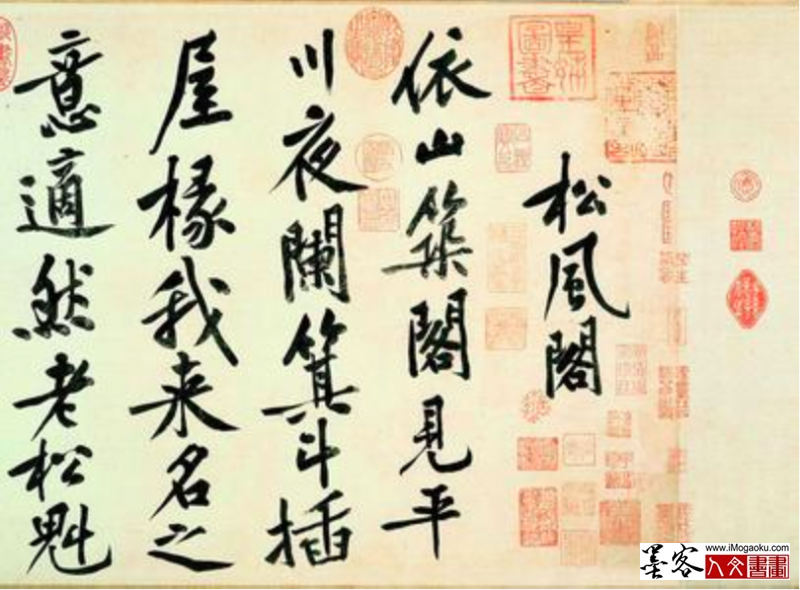 松風閣
依山築閣見平
川夜闌箕斗插
屋椽我来名之
意適然老松魁
皇姊圖書
墨客
www.iMogaoku.com
人文書畫